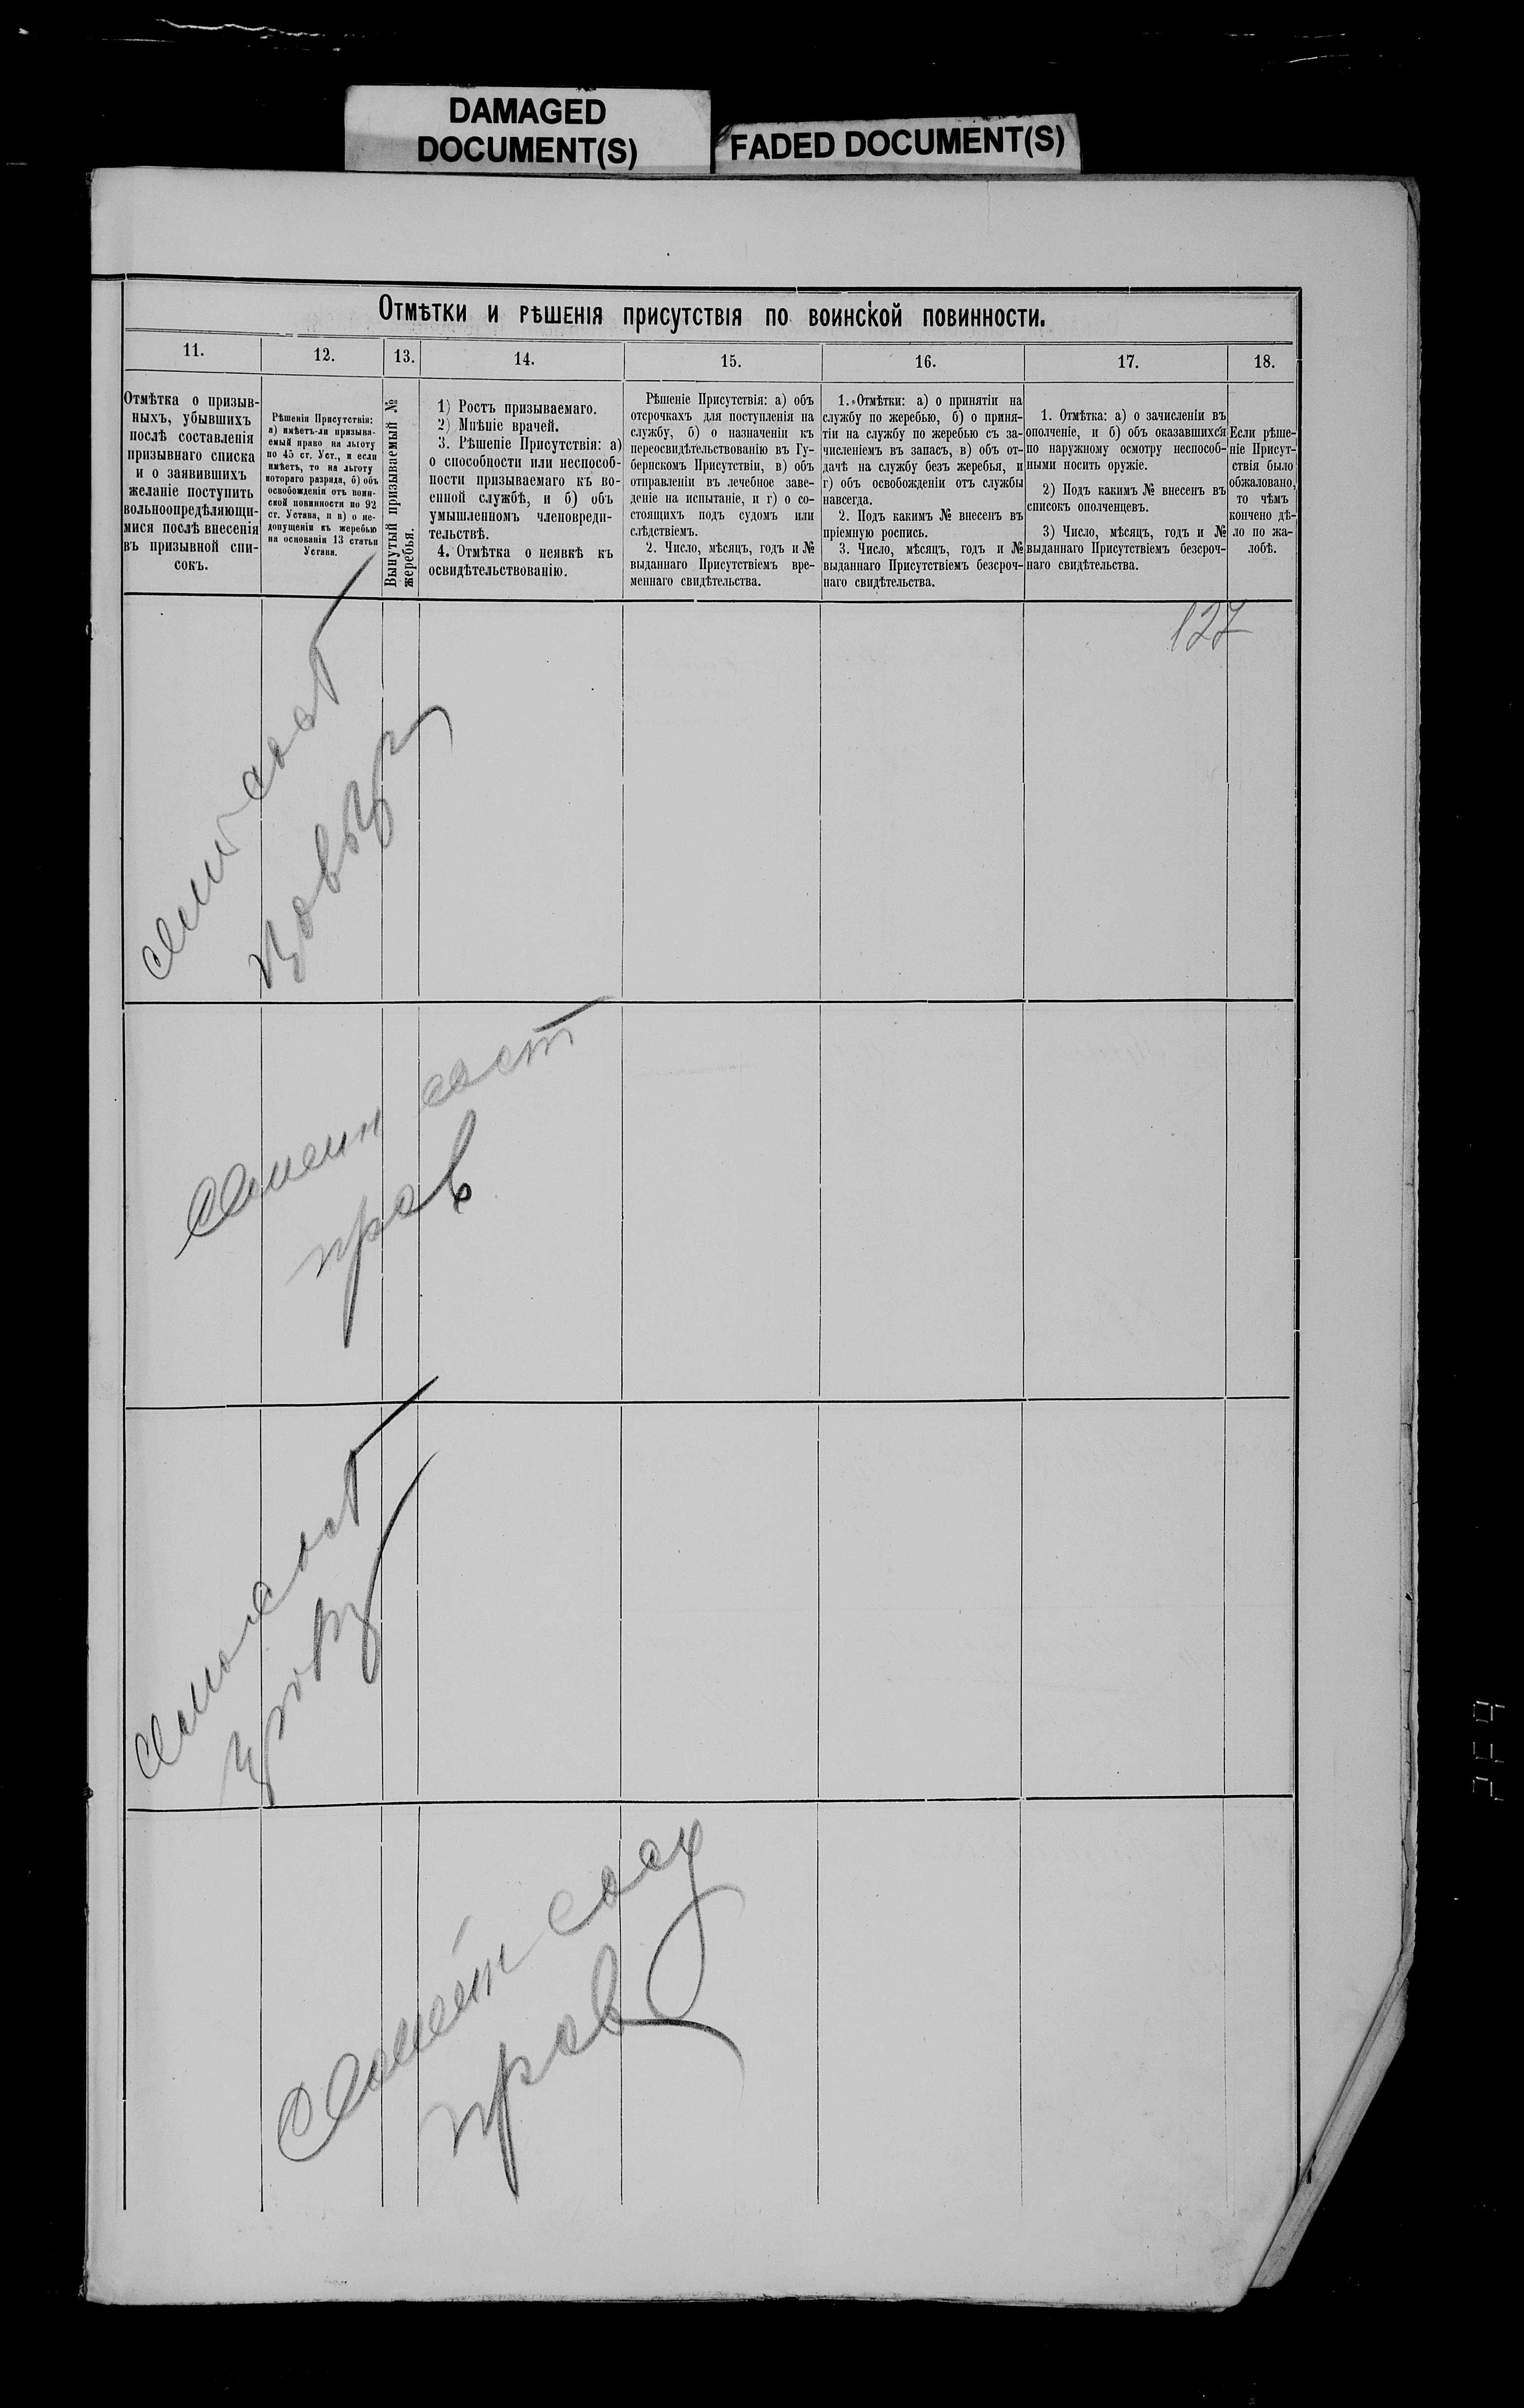 DAMAGED
DOCUMENT(S)
FADED DOCUMENT(S)
Отмѣтки и рѣшенія присутствія по воинской повинности.
11.
12.
13.
14.
15.
16.
17.
18.
Отмѣтка о призыв-
ныхъ, убывшихъ
послѣ составленія
призывнаго списка
и о заявившихъ
желаніе поступить
вольноопредѣляющи-
мися послѣ внесенія
въ призывной спи-
сокъ.
Рѣшенія Присутствія:
а) имѣетъ-ли призыва-
емый право на льготу
по 45 ст. Уст., и если
имѣетъ, то на льготу
котораго разряда, б) объ
освобожденіи отъ воин-
ской повинности по 92
ст. Устава, и в) о не-
допущеніи къ жеребью
на основаніи 13 статьи
Устава.
Вынутый призываемый №
жеребья.
1) Ростъ призываемаго.
2) Мнѣніе врачей.
3. Рѣшеніе Присутствія: а)
о способности или неспособ-
ности призываемаго къ во-
енной службѣ, и б) объ
умышленномъ членовреди-
тельствѣ.
4. Отмѣтка о неявкѣ къ
освидѣтельствованію.
Рѣшеніе Присутствія: а) объ
отсрочкахъ для поступленія на
службу, б) о назначеніи къ
переосвидѣтельствованію въ Гу-
бернскомъ Присутствіи, в) объ
отправленіи въ лечебное заве-
деніе на испытаніе, и г) о со-
стоящихъ подъ судомъ или
слѣдствіемъ.
2. Число, мѣсяцъ, годъ и №
выданнаго Присутствіемъ вре-
меннаго свидѣтельства.
1. Отмѣтки: а) о принятіи на
службу по жеребью, б) о приня-
тіи на службу по жеребью съ за-
численіемъ въ запасъ, в) объ от-
дачѣ на службу безъ жеребья, и
г) объ освобожденіи отъ службы
навсегда.
2. Подъ какимъ № внесенъ въ
пріемную роспись.
3. Число, мѣсяцъ, годъ и №
выданнаго Присутствіемъ безсроч-
наго свидѣтельства.
1. Отмѣтка: а) о зачисленіи въ
ополченіе, и б) объ оказавшихся
по наружному осмотру неспособ-
ными носить оружіе.
2) Подъ какимъ № внесенъ въ
списокъ ополченцевъ.
3) Число, мѣсяцъ, годъ и №
выданнаго Присутствіемъ безсроч-
наго свидѣтельства.
Если рѣше-
ніе Присут-
ствія было
обжаловано,
то чѣмъ
кончено дѣ-
ло по жа-
лобѣ.
127
сост
Семейн сост
пров
сост
Семейн сост
пров